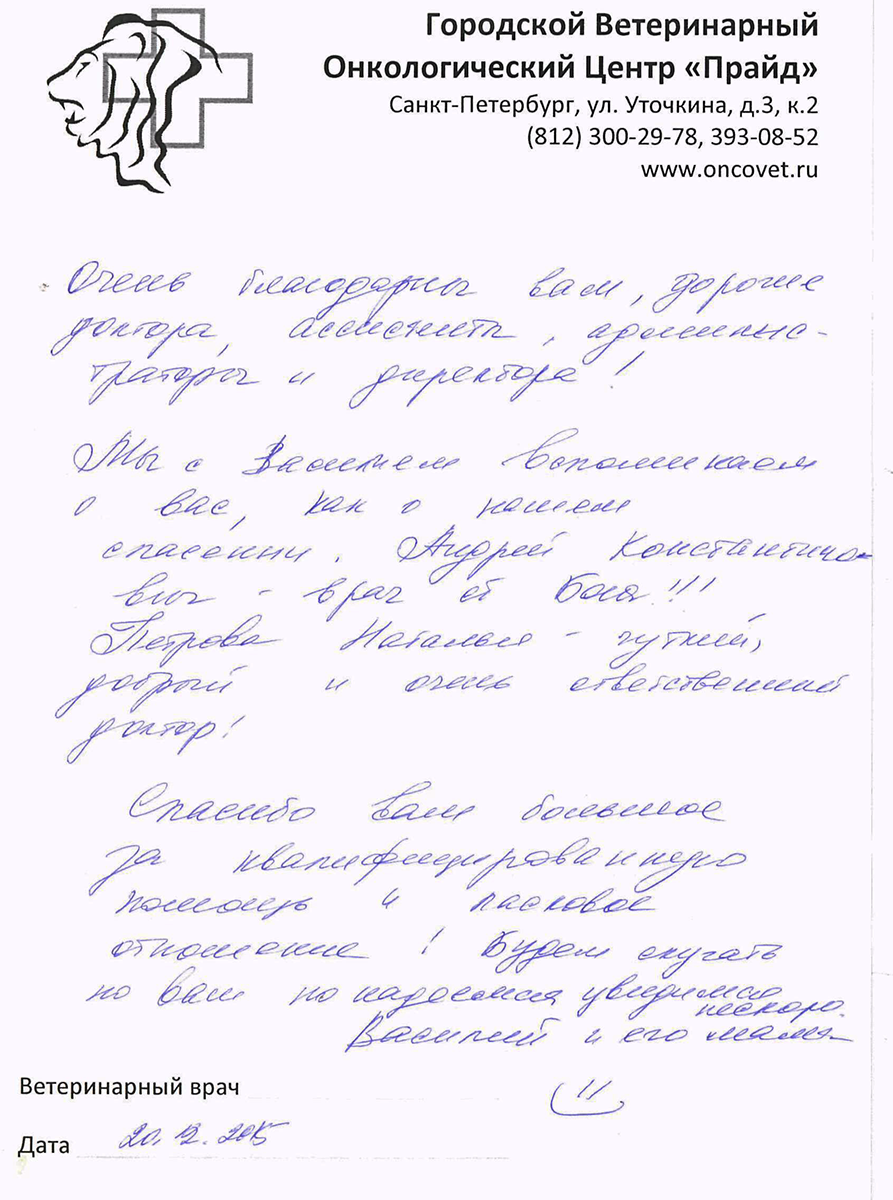 Городской Ветеринарный
Онкологический Центр «Прайд»
Санкт-Петербург, ул. Уточкина, д.3, к.2
(812) 300-29-78, 393-08-52
www.oncovet.ru
Очень благодарны вам, дорогие
доктора, ассистенты, админис-
траторы и директора!
Мы с Василием вспоминаем
о вас, как о нашем
спасении. Андрей Константино-
вич - врач от Бога!!!
Петрова Наталья - чуткий,
добрый и очень ответственный
доктор!
Спасибо вам большое
за квалифицированную
помощь и ласковое
отношение! Будем скучать
по вам но надеемся увидимся
нескоро.
Василий и его мама
Ветеринарный врач
Дата 20.12.2015